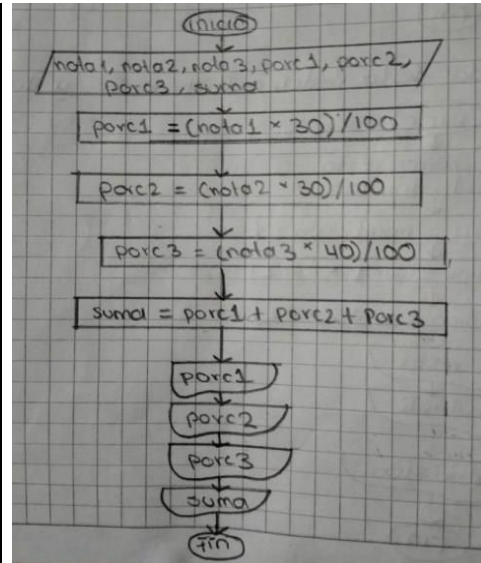 inicio
nota1, nota2, nota3, porc1, porc2,
porc3, suma
porc1 = (nota1 * 30)/100
porc2 = (nota2 * 30)/100
porc3 = (nota3 * 40)/100
suma = porc1 + porc2 + porc3
porc1
porc2
porc3
suma
fin